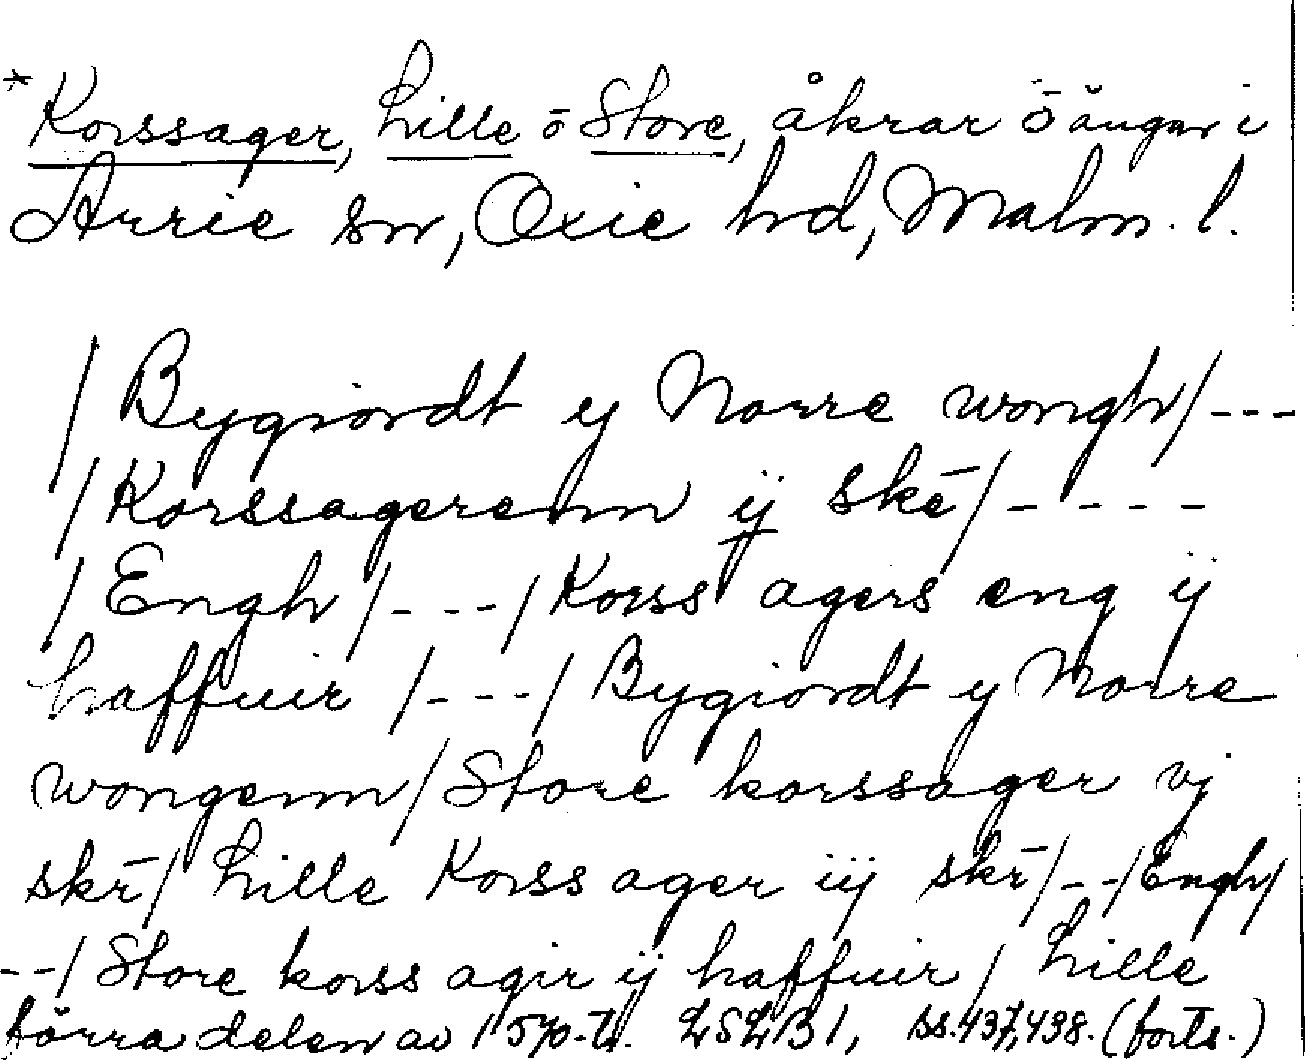 *Korssager, Lille o Store, åkrar o ängar i
Arrie sn, Oxie hd, Malm. l.
/ Bygiordt y Norre wongh/---
/Korssagerenn ij ske/----
/Engh/---/Korss agers eng ij
haffuir /---/ Bygiordt y Norre
wongenn/Store korssager vj
skr/ Lille Korss ager iij skr/--/Engh/
--/Store korss agir ij haffuir/ Lille
förra delen av 1570-t. LSLB1, ss.437,438. (forts.)